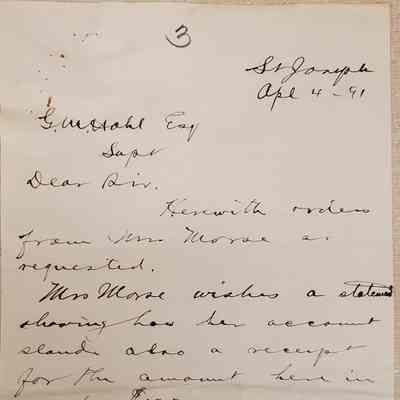 3
St Joseph
Apl 4 - 91
G.M. Hohl Esq
Supt
Dear Sir.
Herewith orders
from Mrs Morse as
requested.
Mrs Morse wishes a statement
showing how her account
stands also a receipt
for the amount here in